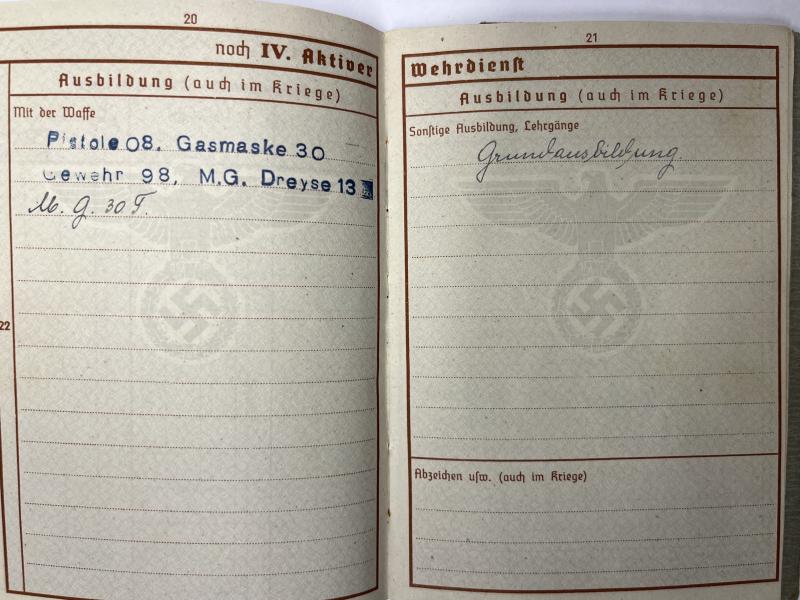 20
noch IV. Aktiver
Ausbildung (auch im Kriege)
Mit der Waffe
Pistole 08. Gasmaske 30
Gewehr 98, M.G. Dreyse 13
M. G. 30 T.
22
21
Wehrdienst
Ausbildung (auch im Kriege)
Sonstige Ausbildung, Lehrgänge
Grundausbildung.
Abzeichen usw. (auch im Kriege)